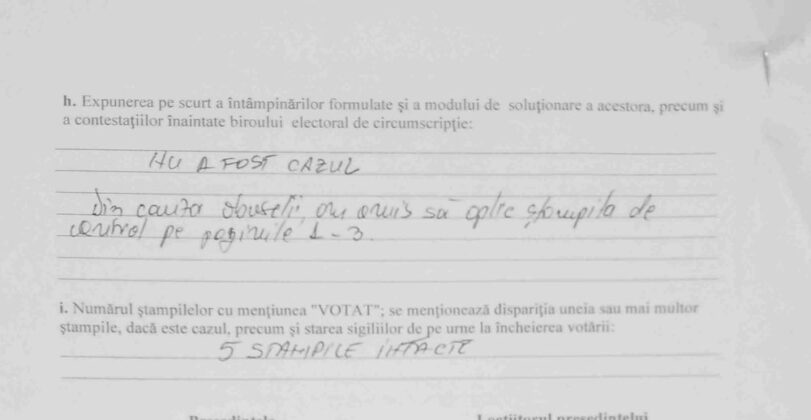 h. Expunerea pe scurt a întâmpinărilor formulate şi a modului de soluţionare a acestora, precum şi
a contestaţiilor înaintate biroului electoral de circumscripţie:
NU A FOST CAZUL
Din cauza oboselii, am omis să aplic ştampila de
control pe paginile 1-3.
i. Numărul ştampilelor cu menţiunea "VOTAT"; se menţionează dispariţia uneia sau mai multor
ştampile, dacă este cazul, precum şi starea sigiliilor de pe urne la încheierea votării:
5 STAMPILE INTACTE
Preşedintele
Locţiitorul preşedintelui